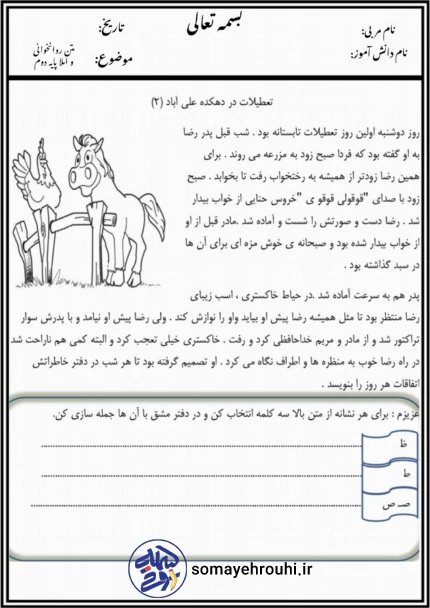 بسمه تعالی
نام مربی:
نام دانش آموز:
تاریخ:
موضوع:
متن روانخوانی
و املا پایه دوم
تعطیلات در دهکده علی آباد (۲)
روز دوشنبه اولین روز تعطیلات تابستانه بود . شب قبل پدر رضا
به او گفته بود که فردا صبح زود به مزرعه می روند . برای
همین رضا زودتر از همیشه به رختخواب رفت تا بخوابد . صبح
زود با صدای "قوقولی قوقو ی "خروس حنایی از خواب بیدار
شد . رضا دست و صورتش را شست و آماده شد .مادر قبل از او
از خواب بیدار شده بود و صبحانه ی خوش مزه ای برای آن ها
در سبد گذاشته بود .
پدر هم به سرعت آماده شد .در حیاط خاکستری ، اسب زیبای
رضا منتظر بود تا مثل همیشه رضا پیش او بیاید واو را نوازش کند . ولی رضا پیش او نیامد و با پدرش سوار
تراکتور شد و از مادر و مریم خداحافظی کرد و رفت . خاکستری خیلی تعجب کرد و البته کمی هم ناراحت شد
در راه رضا خوب به منظره ها و اطراف نگاه می کرد . او تصمیم گرفته بود تا هر شب در دفتر خاطراتش
اتفاقات هر روز را بنویسد .
عزیزم : برای هر نشانه از متن بالا سه کلمه انتخاب کن و در دفتر مشق با آن ها جمله سازی کن.
ظ
ط
صـ ص
somayehrouhi.ir